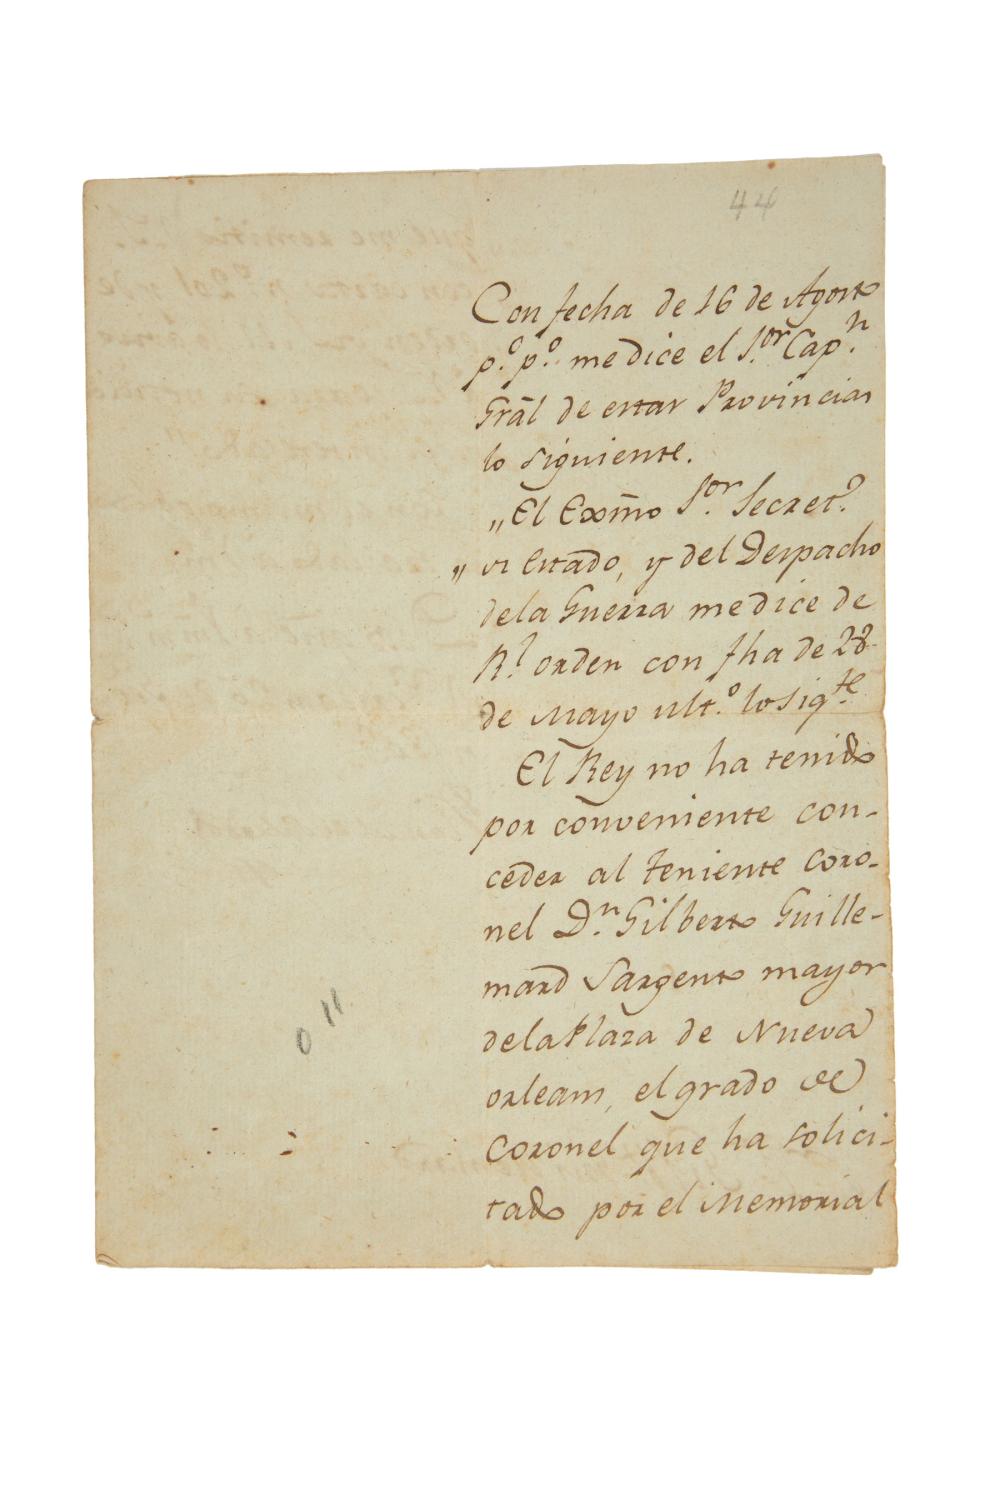 44
Con fecha de 16 de Agosto
p.º p.º me dice el S.or Cap.n
Grāl de estas Provincias
lo siguiente.
„El Exm̄o S.or Secret.º
„ de Estado, y del Despacho
de la Guerra me dice de
R.l orden con fha de 28
de Mayo ult.º lo sig.te
El Rey no ha tenido
por conveniente con-
ceder al teniente Coro-
nel D.n Gilberto Guille-
mard Sargento mayor
de la Plaza de Nueva
orleans, el grado de
Coronel que ha solici-
tado por el Memorial